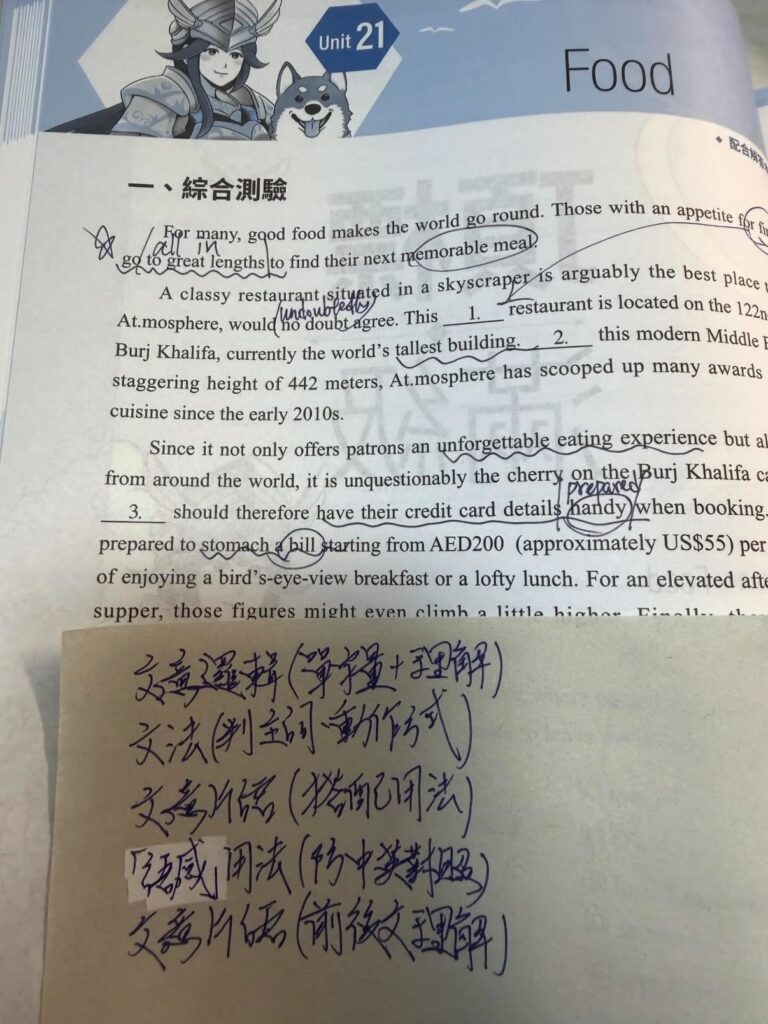 Unit 21
Food
◆ 配合
一、綜合測驗
For many, good food makes the world go round. Those with an appetite for
all in
go to great lengths to find their next memorable meal.
A classy restaurant situated in a skyscraper is arguably the best place
undoubtedly
At.mosphere, would no doubt agree. This 1. restaurant is located on the 122n
Burj Khalifa, currently the world's tallest building. 2. this modern Middle
staggering height of 442 meters, At.mosphere has scooped up many awards
cuisine since the early 2010s.
Since it not only offers patrons an unforgettable eating experience but al
from around the world, it is unquestionably the cherry on the Burj Khalifa ca
prepared
3. should therefore have their credit card details handy when booking.
prepared to stomach a bill starting from AED200 (approximately US$55) per
of enjoying a bird's-eye-view breakfast or a lofty lunch. For an elevated afte
supper, those figures might even climb a little higher. Finally,
文意邏輯(單字量+理解)
文法(判主詞、動作方式)
文意片語(搭配用法)
「語感」用法(防中英對照)
文意片語(前後文理解)